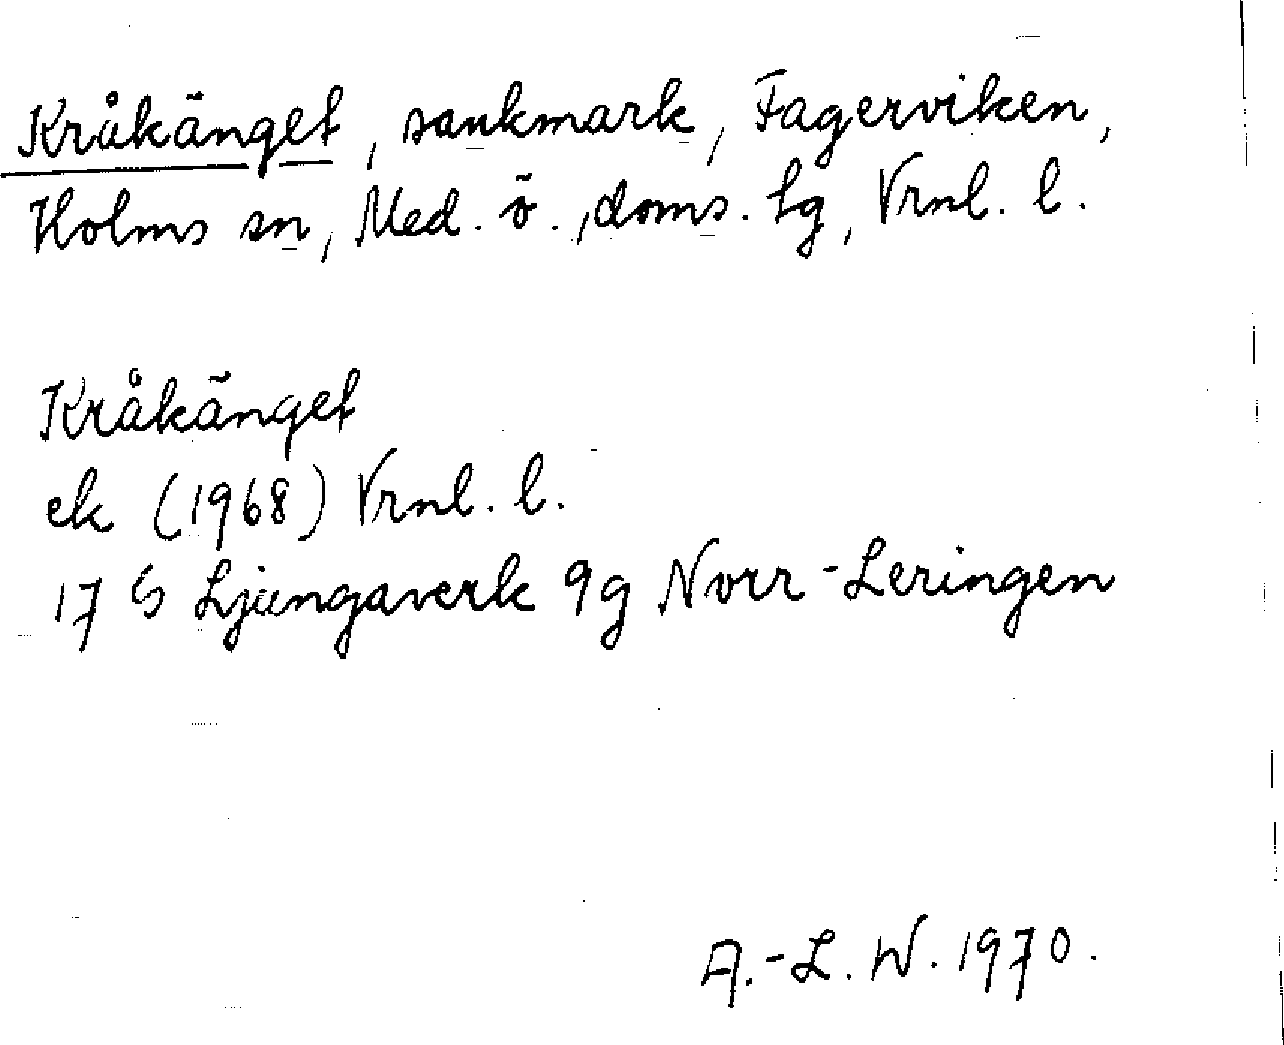 Kråkänget, sankmark, Fagerviken,
Holms sn, Med. ö., doms. hg, Vrnl. l.
Kråkänget
ek (1968) Vrnl. l.
17 G Ljungaverk 9g Norr-Leringen
A.-L. W. 1970.